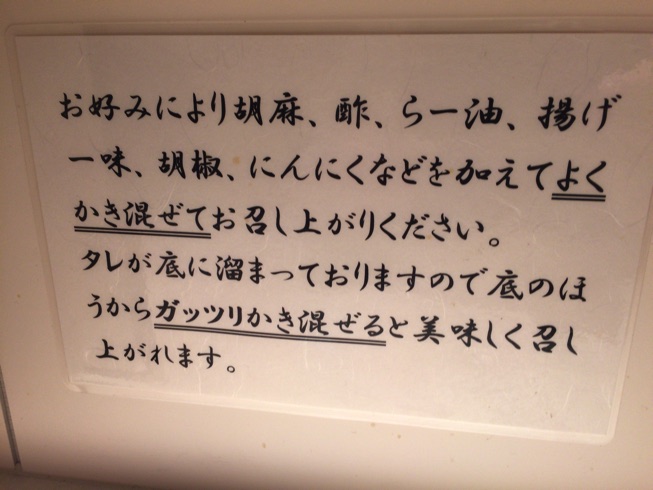 お好みにより胡麻、酢、らー油、揚げ
一味、胡椒、にんにくなどを加えてよく
かき混ぜてお召し上がりください。
タレが底に溜まっておりますので底のほ
うからガッツリかき混ぜると美味しく召し
上がれます。